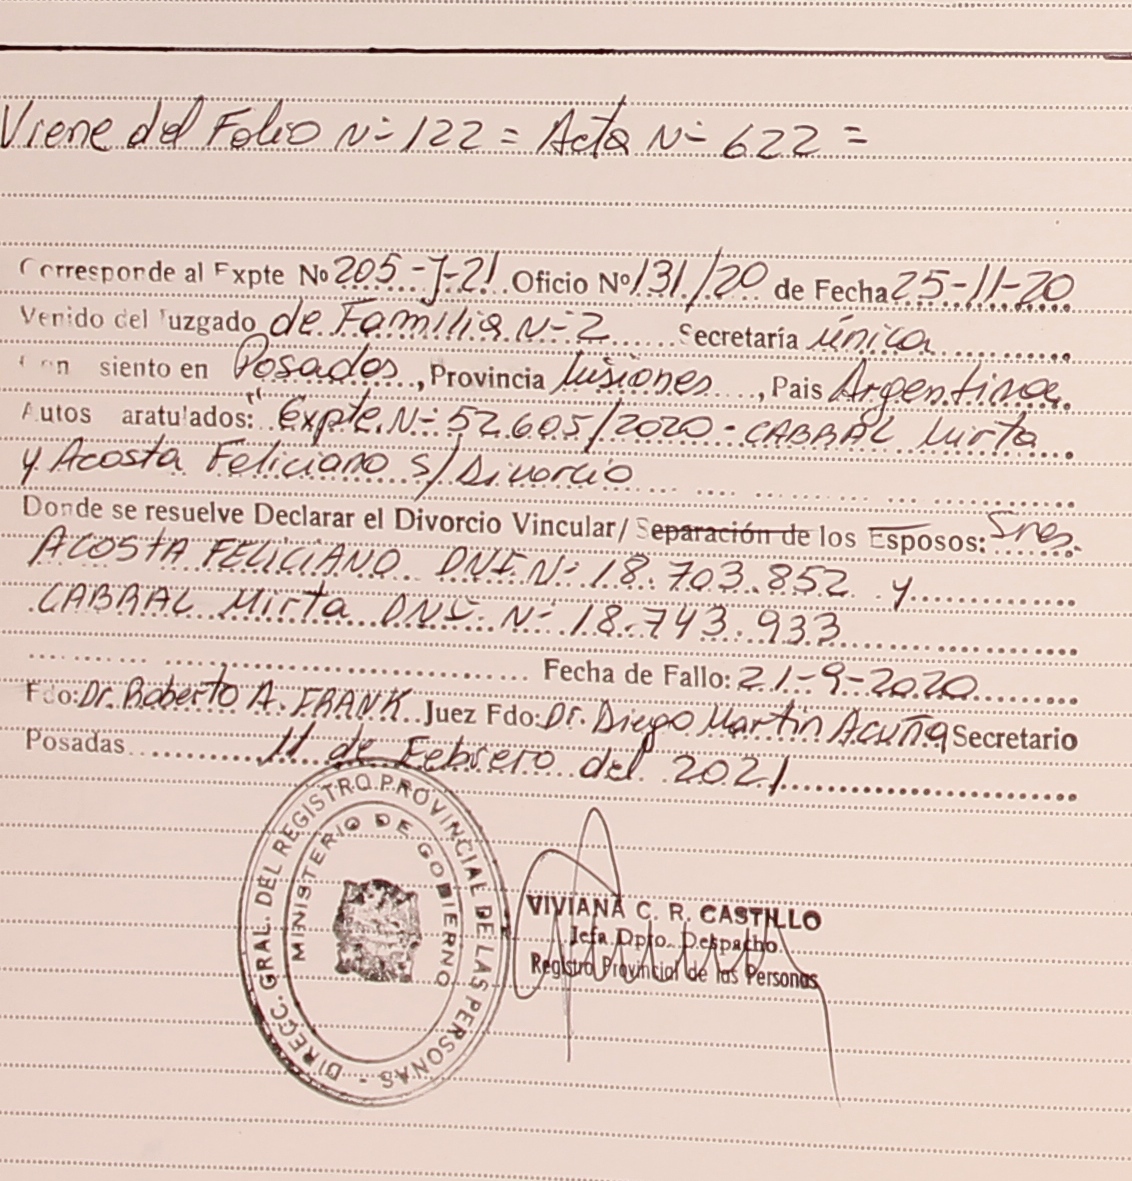 Viene del Folio Nº 122 = Acta Nº 622 =
Corresponde al Expte Nº 205-J-21 Oficio Nº 131/20 de Fecha 25-11-20
Venido del Juzgado de Familia Nº 2 Secretaría única
Con asiento en Posadas, Provincia Misiones, Pais Argentina.
Autos caratulados: "Expte. Nº 52.605/2020 - CABRAL Mirta
y Acosta Feliciano s/ Divorcio
Donde se resuelve Declarar el Divorcio Vincular/ Separación de los Esposos: Sres.
ACOSTA FELICIANO DNI Nº 18.703.852 y
CABRAL Mirta DNI Nº 18.743.933
Fecha de Fallo: 21-9-2020
Fdo: Dr. Roberto A. FRANK Juez Fdo: Dr. Diego Martin Acuña Secretario
Posadas 11 de Febrero del 2021
DIRECC. GRAL. DEL REGISTRO PROVINCIAL DE LAS PERSONAS -
MINISTERIO DE GOBIERNO
VIVIANA C. R. CASTILLO
Jefa Dpto. Despacho
Registro Provincial de las Personas